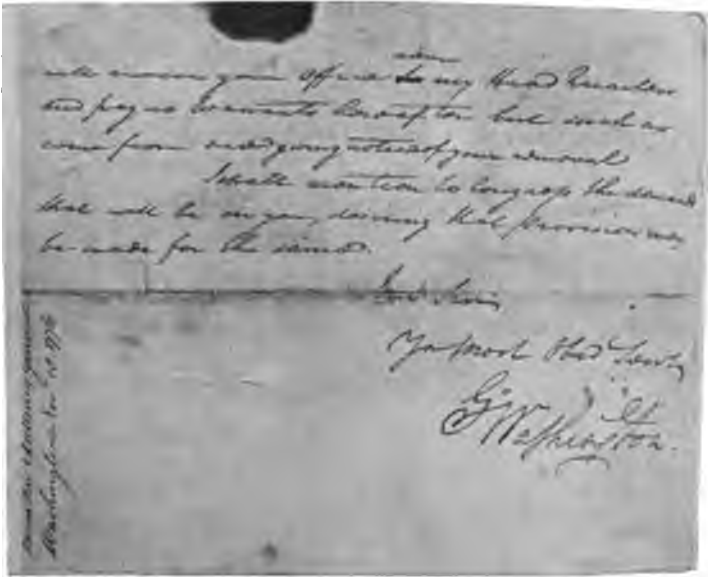 will move your Office to my Head Quarters
and pay no warrants hereafter but such as
come from me giving notice of your removal
I shall mention to Congress the demands
that will be on you, desiring that provision may
be made for the same.
I am Sir
Yr most Obed Servt
G Washington.
General
Washington Nov 1776